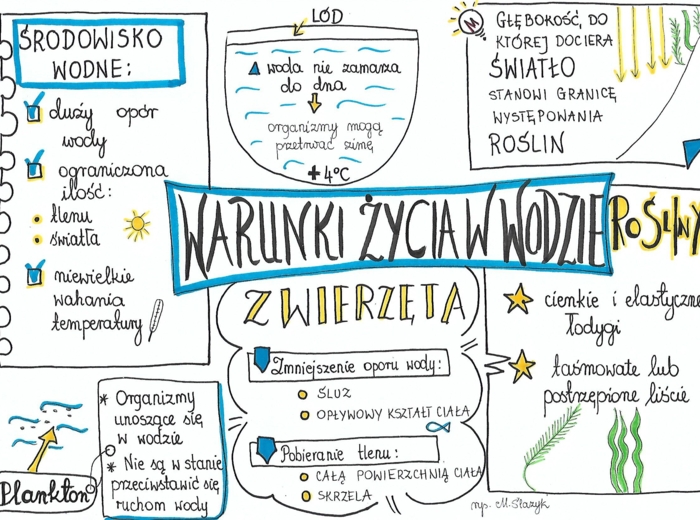 ŚRODOWISKO
WODNE:
duży opór
wody
ograniczona
ilość:
tlenu
światła
niewielkie
wahania
temperatury
LÓD
woda nie zamarza
do dna
organizmy mogą
przetrwać zimę
+4°C
GŁĘBOKOŚĆ, DO
KTÓREJ DOCIERA
ŚWIATŁO
STANOWI GRANICĘ
WYSTĘPOWANIA
ROŚLIN
WARUNKI ŻYCIA W WODZIE
ZWIERZĘTA
Zmniejszenie oporu wody:
ŚLUZ
OPŁYWOWY KSZTAŁT CIAŁA
Pobieranie tlenu:
CAŁĄ POWIERZCHNIĄ CIAŁA
SKRZELA
ROŚLINY
cienkie i elastyczne
łodygi
taśmowate lub
postrzępione liście
Plankton
* Organizmy
unoszące się
w wodzie
* Nie są w stanie
przeciwstawić się
ruchom wody